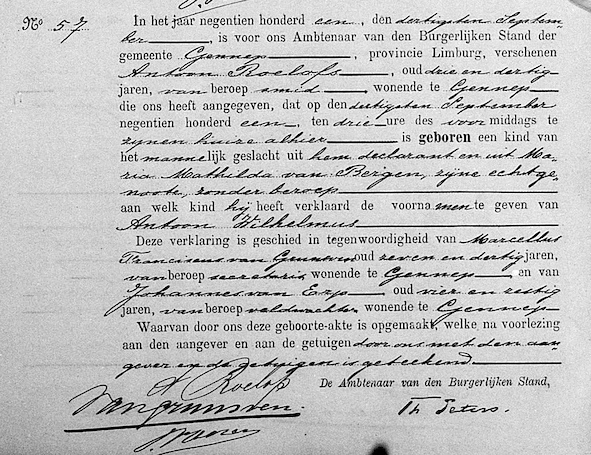 No 57 In het jaar negentien honderd een, den dertigsten Septem-
ber, is voor ons Ambtenaar van den Burgerlijken Stand der
gemeente Gennep, provincie Limburg, verschenen
Antoon Roelofs, oud drie en dertig
jaren, van beroep smid, wonende te Gennep
die ons heeft aangegeven, dat op den dertigsten September
negentien honderd een, ten drie ure des voormiddags te
zijnen huize alhier is geboren een kind van
het mannelijk geslacht uit hem declarant en uit Ma-
ria Mathilda van Bergen, zijne echtge-
noote, zonder beroep
aan welk kind hij heeft verklaard de voornamen te geven van
Antoon Wilhelmus
Deze verklaring is geschied in tegenwoordigheid van Marcellus
Franciscus van Grunsven oud zeven en dertig jaren,
van beroep secretaris wonende te Gennep, en van
Johannes van Erp, oud vier en zestig
jaren, van beroep veldwachter wonende te Gennep
Waarvan door ons deze geboorte-akte is opgemaakt, welke na voorlezing
aan den aangever en aan de getuigen door ons met den aan-
gever en de getuigen is geteekend
A Roelofs De Ambtenaar van den Burgerlijken Stand,
van Grunsven. Th. Peters.